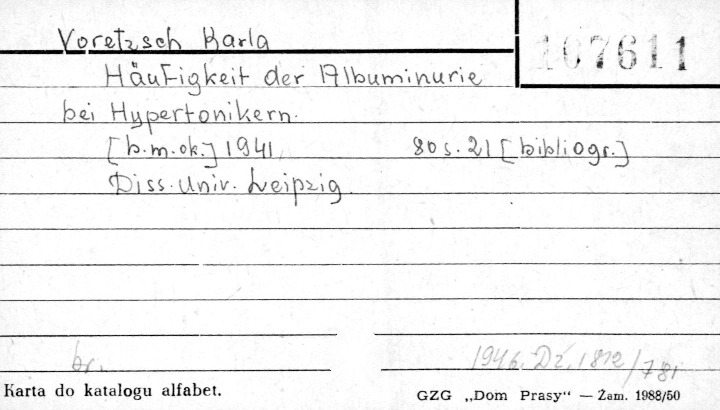 Voretzsch Karla
107611
Häufigkeit der Albuminurie
bei Hypertonikern.
[b.m.ok.] 1941. 80 s. 21 [bibliogr.]
Diss. Univ. Leipzig.
br. 1946. Dź. 1812/781
Karta do katalogu alfabet. GZG „Dom Prasy“ — Zam. 1988/50